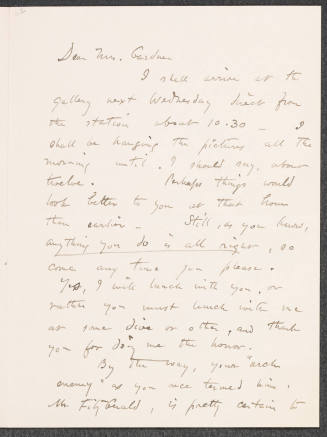 Dear Mrs. Gardner
I shall arrive at the
gallery next Wednesday direct from
the station about 10.30 — I
shall be hanging the pictures all the
morning until, I should say, about
twelve. Perhaps things would
look better to you at that hour
than earlier — Still, as you know,
anything you do is all right, so
come any time you please.
Yes, I will lunch with you, or
rather you must lunch with me
at some dive or other, and thank
you for doing me the honor.
By the way, your "arch
enemy" as you once termed him,
Mr FitzGerald, is pretty certain to